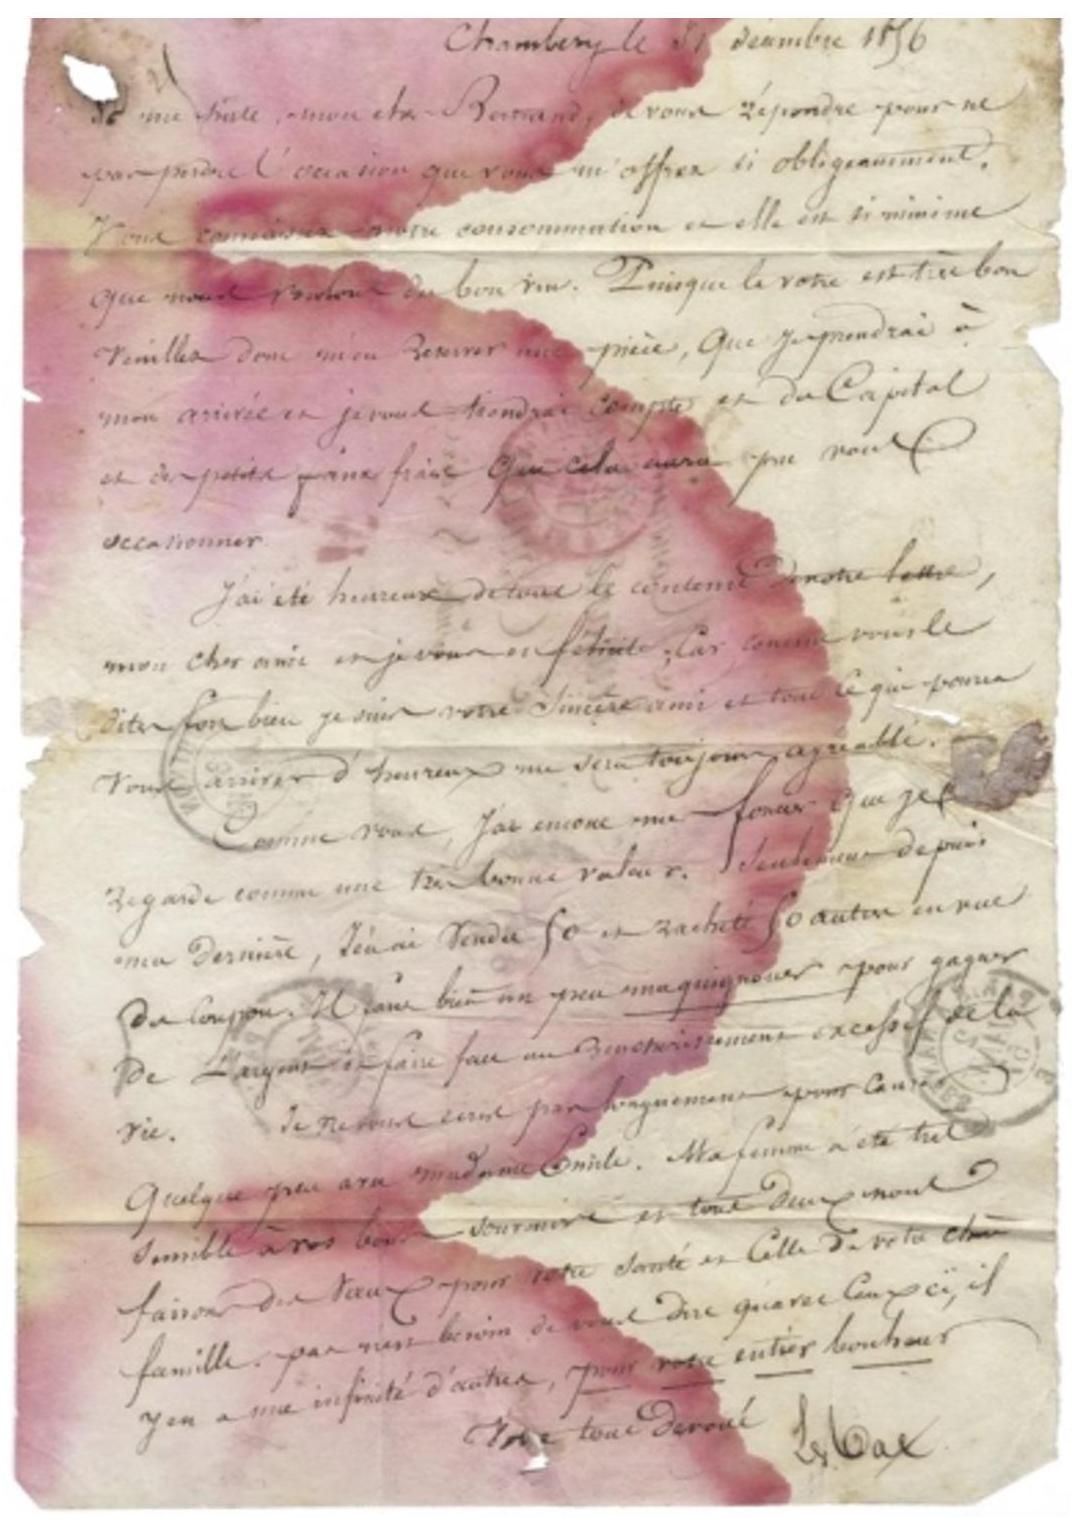 Chambery le 31 décembre 1856
Je me hâte, mon cher Bertrand, de vous répondre pour ne
pas perdre l'occasion que vous m'offrez si obligeamment.
Vous connaissez notre consommation et elle est si minime
que nous voulons du bon vin. Puisque le votre est très bon
Veuillez donc m'en reserver une pièce, que je prendrai à
mon arrivée et je vous tiendrai compte et du Capital
et des petits frais que cela aura pu vous
occasionner
J'ai été heureux de tout le contenu de votre lettre,
mon cher ami et je vous en félicite, Car comme vous le
dites fort bien je suis votre Sincère ami et tout ce qui pourra
Vous arriver d'heureux me sera toujours agréable.
Comme vous, J'ai encore que je
regarde comme une très bonne valeur. Seulement depuis
ma Dernière, J'en ai Vendu 50 et racheté 50 autres en vue
du Coupon. Il faut bien un peu maquignoner pour gagner
De L'argent et faire face au rencherissement excessif de la
vie. Je ne vous écris pas longuement pour cause
Quelque peu madame Emile. Ma femme a été très
Sensible à vos bons souvenirs et tous deux nous
faisons des Vœux pour votre Santé et Celle de votre chère
famille. pas n'est besoin de vous dire qu'avec Ceux ci, il
y en a une infinité d'autres, pour votre entier bonheur
Votre tout Devoué